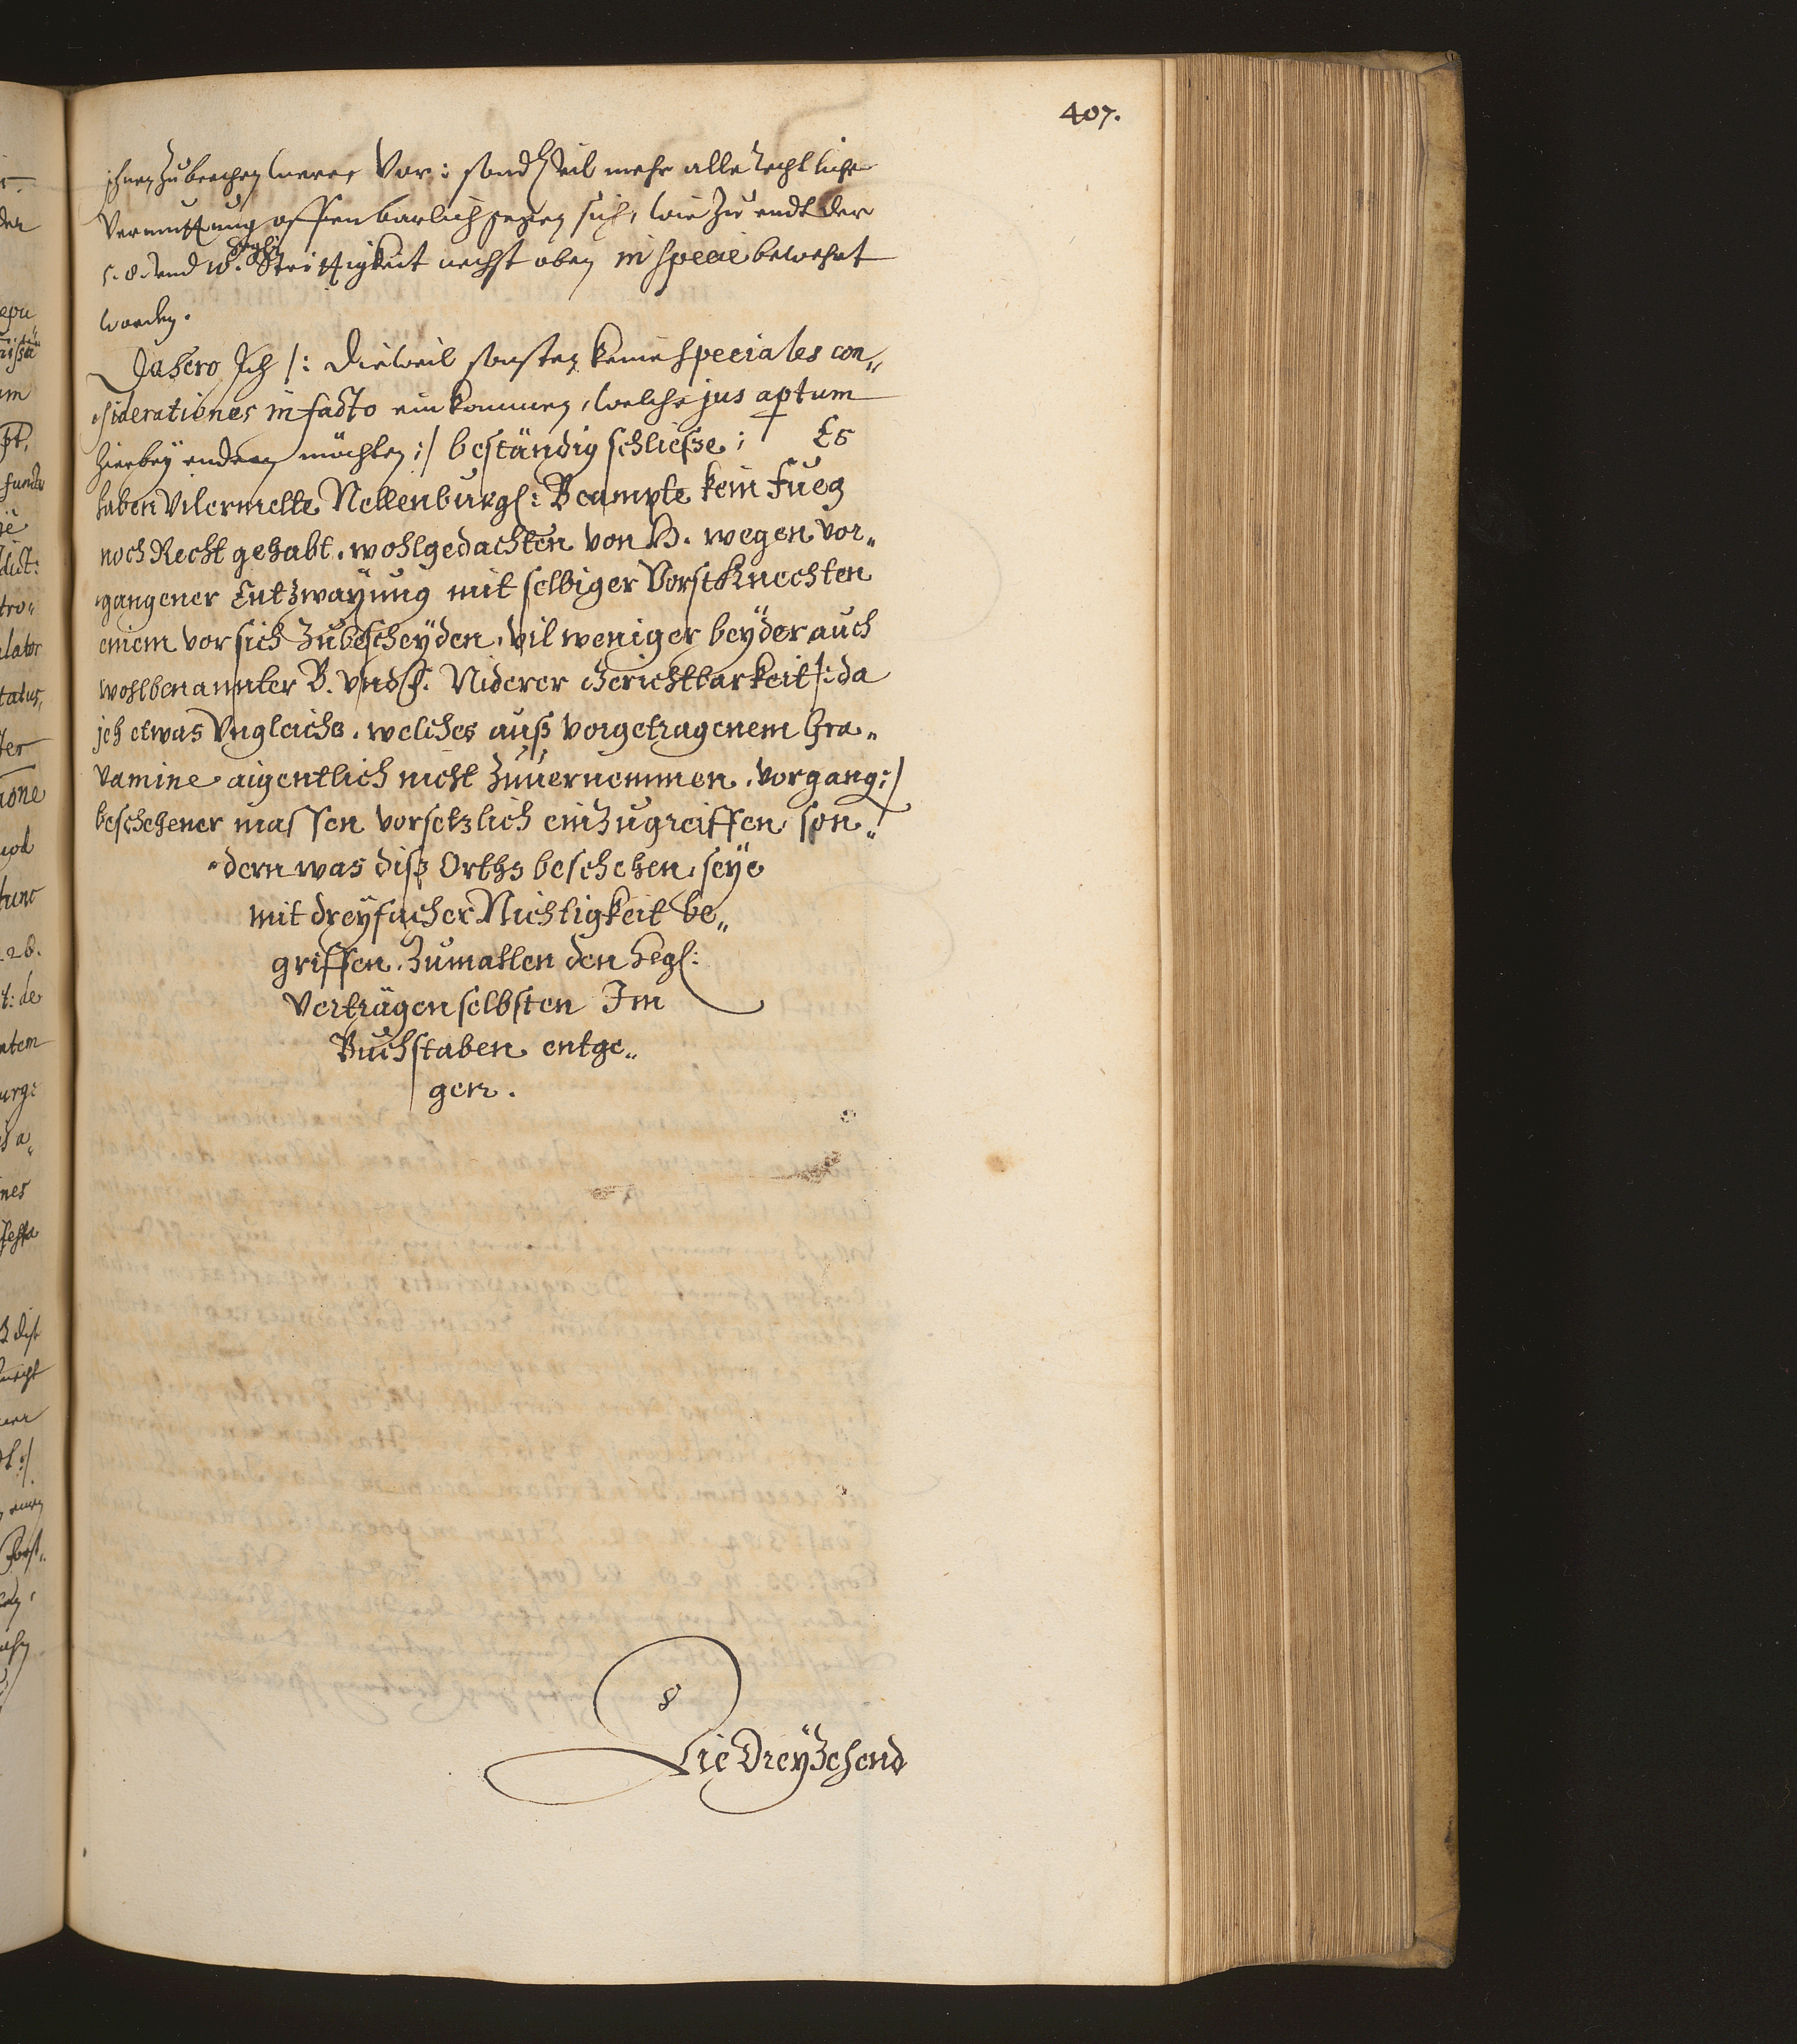 407.
ihnen zubrechen were, Vor: sond vil mehr alle rechtliche
Vermuttung offenbarlich gegen sich, wie zu endt der
5. 8. vnd 10. Hegl: Strittigkeit nechst oben in specie bewehrt
worden.
Dahero Ich /: dieweil sonsten keine speciales con„
siderationes in facto einkommen, welche jus aptum
hierbey endern möchten :/ beständig schliesse; Es
haben vilermelte Nellenburgl: Beampte kein Fueg
noch Recht gehabt. wohlgedachten von H. wegen vor„
gangener Entzwayung mit selbiger Vorstknechten
einem vor sich zubescheyden, vil weniger beyder auch
wohlbenannter B. vnd H. Niderer Gerichtbarkeit /: da
ich etwas Vngleichs, welches auß vorgetragenem Gra„
vamine aigentlich nicht zuuernemmen, vorgang :/
beschehener massen vorsetzlich einzugreiffen, son„
dern was diß Orths beschehen, seye
mit dreyfacher Nichtigkeit be„
griffen, Zumahlen den Hegl:
Verträgen selbsten Im
Buchstaben entge„
gen.
Die Dreyzehend